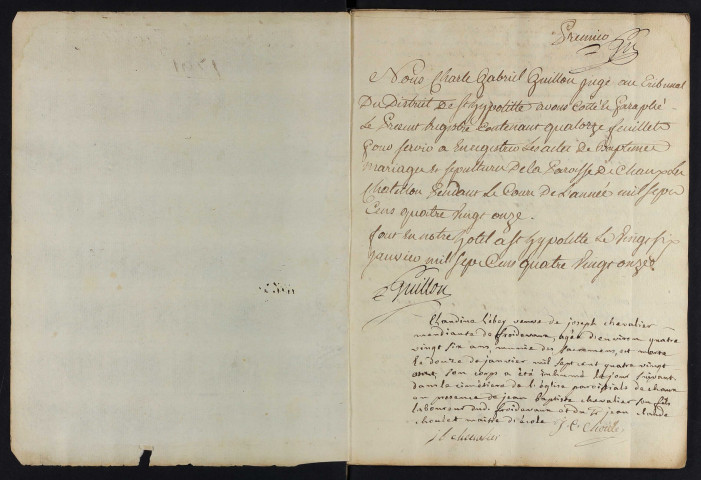 Premier
Nous Charle Gabriel Guillon juge au Tribunal
Du District de St hypolitte avons cotté et Paraphé
Le Present Registre Contenant quatorze feuillets
Pour servir a Enregistrer Les actes de Baptêmes
mariages et sepultures De la Paroisse de Chaux Les
Chatillon Pendant Le Cours De L'année mil sept
Cens quatre vingt onze.
fait en notre hotel a St hypolitte Le Vingt six
janvier mil sept Cens quatre Vingt onze
Guillon
Claudine veuve de joseph chevalier
mendiante de froidevaux, agée d'environ quatre
vingt six ans, munie des sacremens, est morte
le douze de janvier mil sept cent quatre vingt
onze, son corps a été inhumé le jour suivant
dans le cimetière de l'église paroissiale de chaux
en presence de jean baptiste chevalier son fils
laboureur dud. froidevaux et du Sr jean claude
maitre d'école J. C.